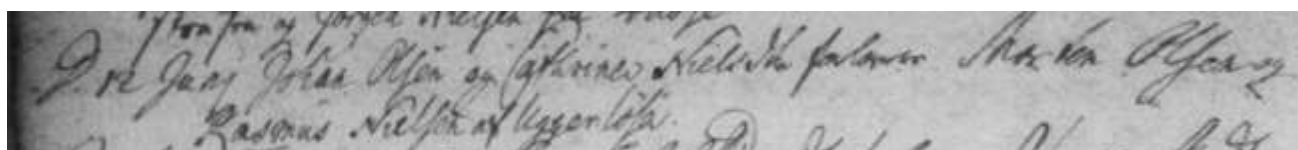 og Jørgen Nielsen
D. 12 Junj Johan Olsen og Cathrine Nielsdtr forlover Morten Olsen og
Rasmus Nielsen af Uggerløse.